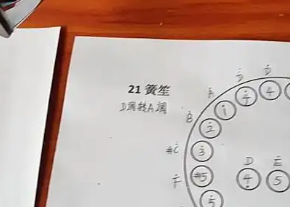 21 簧笙
D调转A调
D
D
A
4
1
B
2
#C
3
D
E
F
#5
4
5
5